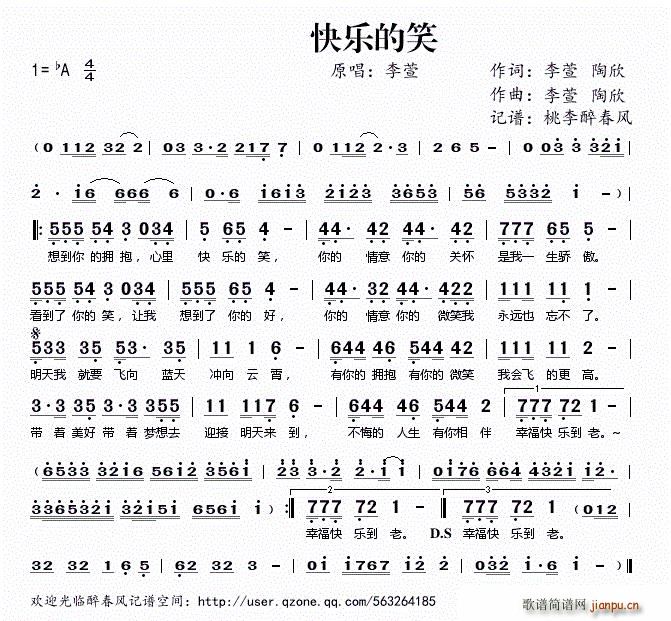 快乐的笑
1=♭A 4/4 原唱：李萱 作词：李萱 陶欣
作曲：李萱 陶欣
记谱：桃李醉春风
（0 112 32 2 | 03 3·2 217 7 | 0 112 3 2 | 2 6 5 － | 0 03 3 32i |
2 · i6 666 6 | 0·6 i6i3 2i23 3653 | 56 5332 i －）|
‖: 555 54 3 034 | 5 65 4 － | 44· 42 44· 42 | 777 65 5 － |
想到你 的拥 抱，心里 快 乐的 笑， 你的 情意 你的 关怀 是我一 生骄 傲。
555 54 3 034 | 555 65 4 － | 44· 32 44· 422 | 111 11 1 － |
看到了 你的 笑，让我 想到了 你的 好， 你的 情意 你的 微笑我 永远也 忘不 了。
533 35 53· 35 | 11 1 6 － | 644 46 544 42 | 111 11 2 － |
明天我 就要 飞向 蓝天 冲向 云 霄， 有你的 拥抱 有你的 微笑 我会飞 的更 高。
3·3 35 3·3 355 | 11 117 6 － | 644 46 544 2 | 777 72 1 － |
带 着 美好 带 着 梦想去 迎接 明天来 到， 不悔的 人生 有你相 伴 幸福快 乐到 老。～
（6533 32i6 56i2 356i | 23 3·2 2·i i | 0i76 664 432i i2· |
3365332i 2i535i 656i i ）:‖ 777 72 1 － ‖ 777 72 1 （012 |
幸福快 乐到 老。 D.S 幸福快 乐到 老。
32 32 1 6 5 | 62 32 3 － | 0i 32 3·2 2 | 032 i·6 i － ）‖
欢迎光临醉春风记谱空间：http://user.qzone.qq.com/563264185
歌谱简谱网
jianpu.cn